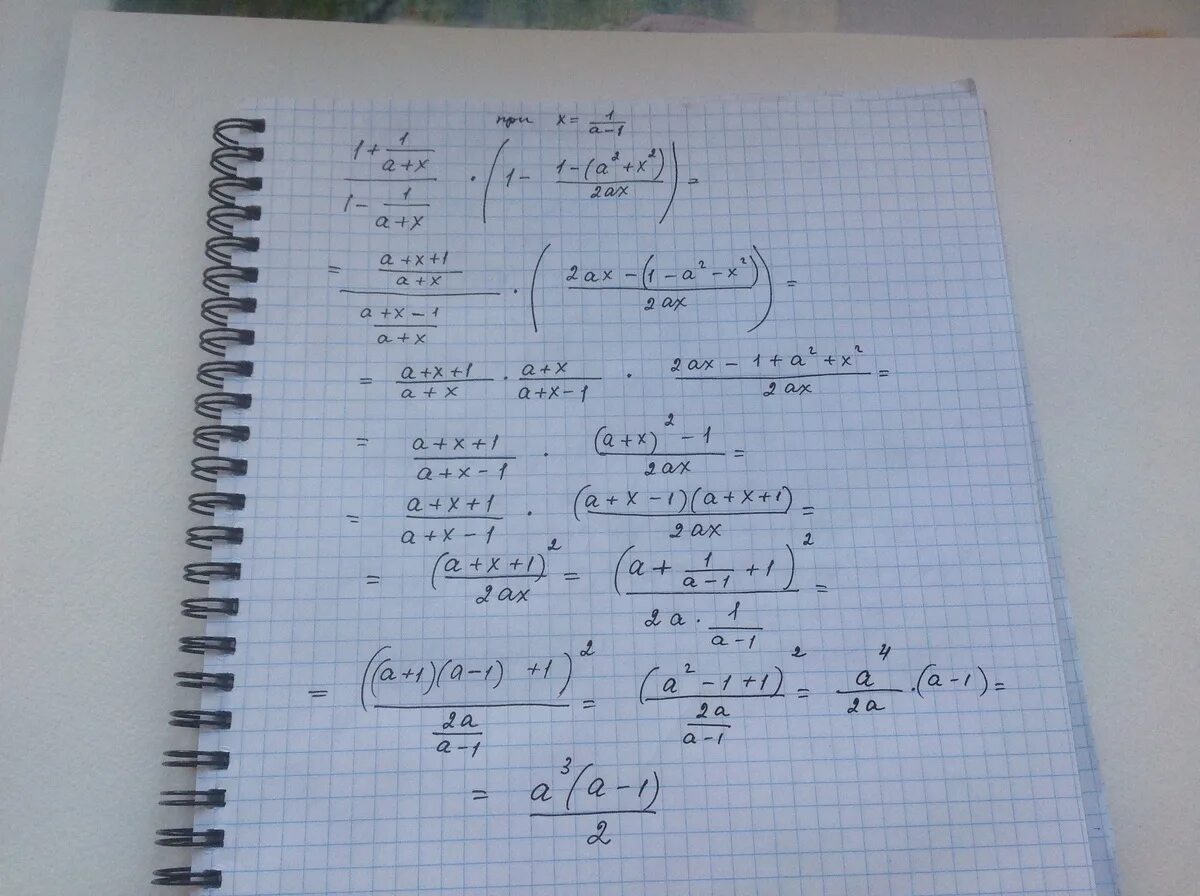 при x = \frac{1}{a-1}
\frac{1+\frac{1}{a+x}}{1-\frac{1}{a+x}} · (1 - \frac{1-(a^2+x^2)}{2ax}) =
= \frac{\frac{a+x+1}{a+x}}{\frac{a+x-1}{a+x}} · (\frac{2ax-(1-a^2-x^2)}{2ax}) =
= \frac{a+x+1}{a+x} · \frac{a+x}{a+x-1} · \frac{2ax-1+a^2+x^2}{2ax} =
= \frac{a+x+1}{a+x-1} · \frac{(a+x)^2-1}{2ax} =
= \frac{a+x+1}{a+x-1} · \frac{(a+x-1)(a+x+1)}{2ax} =
= \frac{(a+x+1)^2}{2ax} = \frac{(a+\frac{1}{a-1}+1)^2}{2a·\frac{1}{a-1}} =
= \frac{((a+1)(a-1)+1)^2}{\frac{2a}{a-1}} = \frac{(a^2-1+1)^2}{\frac{2a}{a-1}} = \frac{a^4}{2a}·(a-1) =
= \frac{a^3(a-1)}{2}